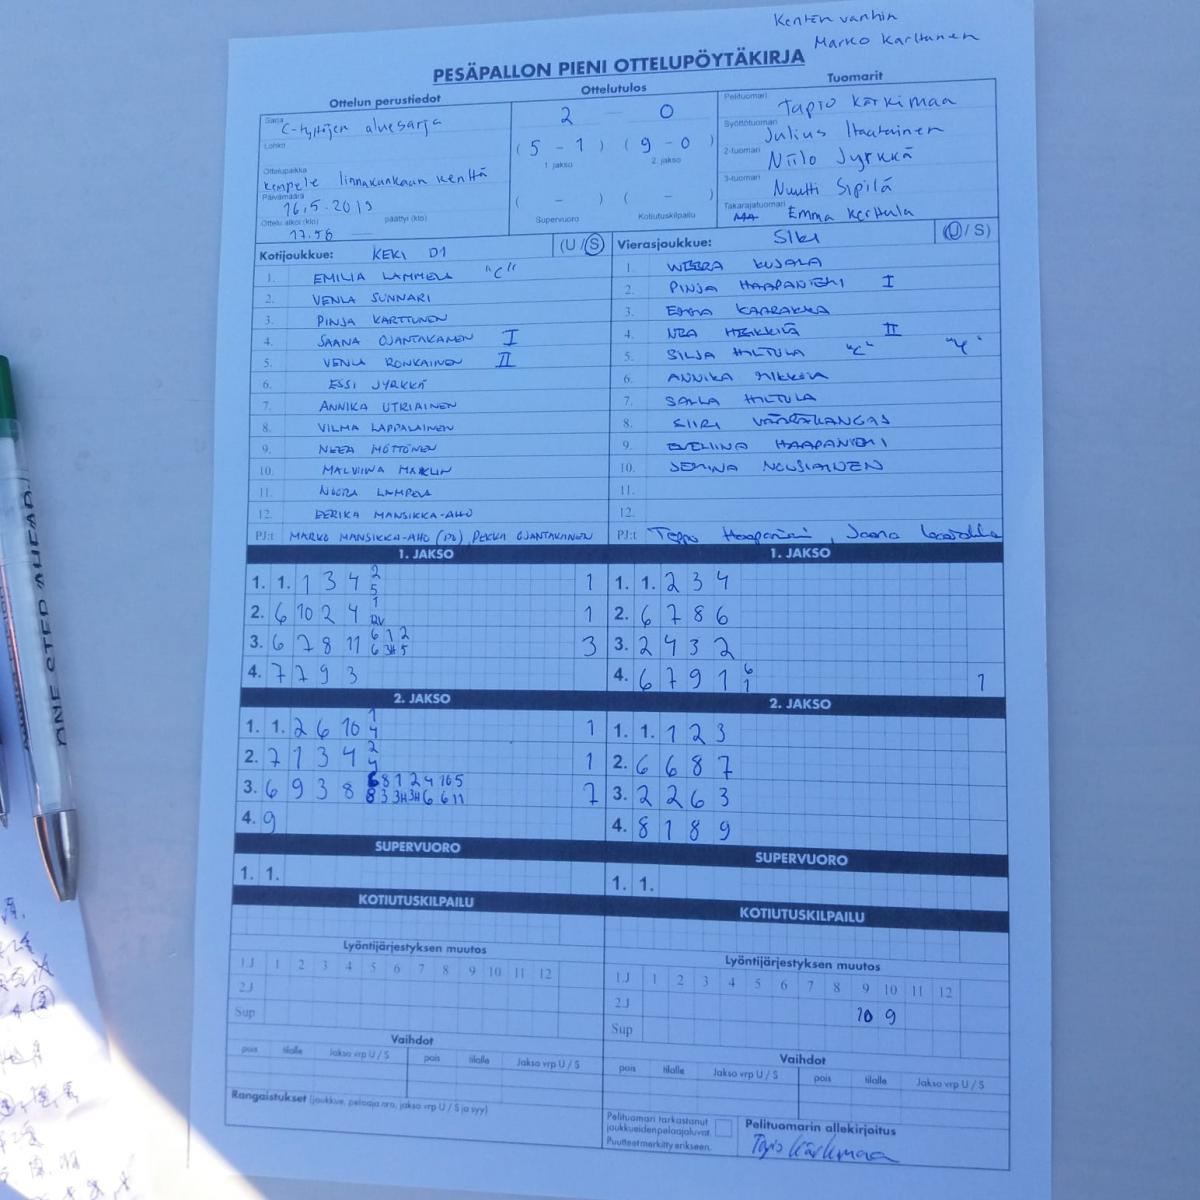 Kentän vanhin
Marko Karttunen
PESÄPALLON PIENI OTTELUPÖYTÄKIRJA
Ottelun perustiedot
Ottelutulos
Tuomarit
Sarja
C-tyttöjen aluesarja
Lohko
Ottelupaikka
Kempele linnakankaan kenttä
Päivämäärä
16.5.2019
Ottelu alkoi (klo) päättyi (klo)
17.58
2 - 0
(5 - 1) (9 - 0)
1. jakso 2. jakso
( - ) ( - )
Supervuoro Kotiutuskilpailu
Pelituomari Tapio Kärkimaa
Syöttötuomari Julius Itaatainen
2-tuomari Niilo Jyrkkä
3-tuomari Nuutti Sipilä
Takarajatuomari Emma Kerttula
Kotijoukkue: KEKI D1 (U / S)
1. EMILIA LAMMELA "C"
2. VENLA SUNNARI
3. PINJA KARTTUNEN
4. SAANA OJANTAKANEN I
5. VENLA RONKAINEN II
6. ESSI JYRKKÄ
7. ANNIKA UTRIAINEN
8. VILMA LAPPALAINEN
9. NEEA MÖTTÖNEN
10. MALVIINA
11. NOORA
12. EERIKA MANSIKKA-AHO
PJ:t MARKO MANSIKKA-AHO (PJ), PEKKA OJANTAKANEN
Vierasjoukkue: SIKI (U / S)
1. WEERA KUJALA
2. PINJA HAAPANIEMI I
3. EMMA KAARAKKA
4. NEA HEIKKILÄ II
5. SILJA HILTULA "C"
6. ANNIKA MIKKOLA
7. SALLA HILTULA
8. SIIRI VÄÄRÄKANGAS
9. EVELIINA HAAPANIEMI
10. JEMINA NOUSIAINEN
11.
12.
PJ:t Teppo Haapaniemi, Jaana
1. JAKSO
1. 1. 1 3 4 2 1
5
2. 6 10 2 4 1 1
RV
3. 6 7 8 11 6 1 2 3
6 3H 5
4. 7 7 9 3
2. JAKSO
1. 1. 2 6 10 1 1
4
2. 7 1 3 4 2 1
4
3. 6 9 3 8 6 8 1 2 4 10 5 7
8 3 3H 3H 6 6 11
4. 9
SUPERVUORO
1. 1.
KOTIUTUSKILPAILU
Lyöntijärjestyksen muutos
1J 1 2 3 4 5 6 7 8 9 10 11 12
2J
Sup
Vaihdot
pois tilalle Jakso vrp U / S pois tilalle Jakso vrp U / S
Rangaistukset (joukkue, pelaaja nro, jakso vrp U / S ja syy)
1. JAKSO
1. 1. 2 3 4
2. 6 7 8 6
3. 2 4 3 2
4. 6 7 9 1 6 1
1
2. JAKSO
1. 1. 1 2 3
2. 6 6 8 7
3. 2 2 6 3
4. 8 1 8 9
SUPERVUORO
1. 1.
KOTIUTUSKILPAILU
Lyöntijärjestyksen muutos
1J 1 2 3 4 5 6 7 8 9 10 11 12
2J 10 9
Sup
Vaihdot
pois tilalle Jakso vrp U / S pois tilalle Jakso vrp U / S
Pelituomari tarkastanut
joukkueiden pelaajaluvat.
Puutteet merkitty erikseen.
Pelituomarin allekirjoitus
Tapio Kärkimaa
ONE STEP AHEAD